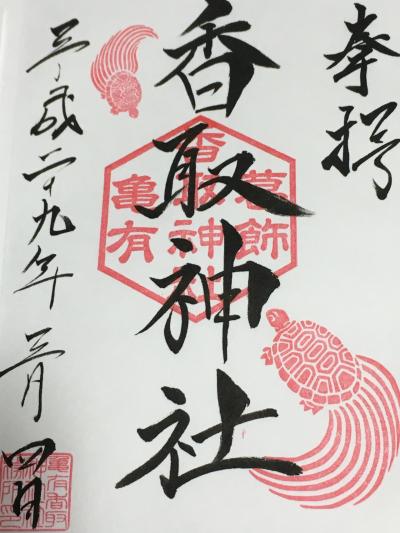 奉拝
香取神社
葛飾
香取神社
亀有
平成二十九年三月四日